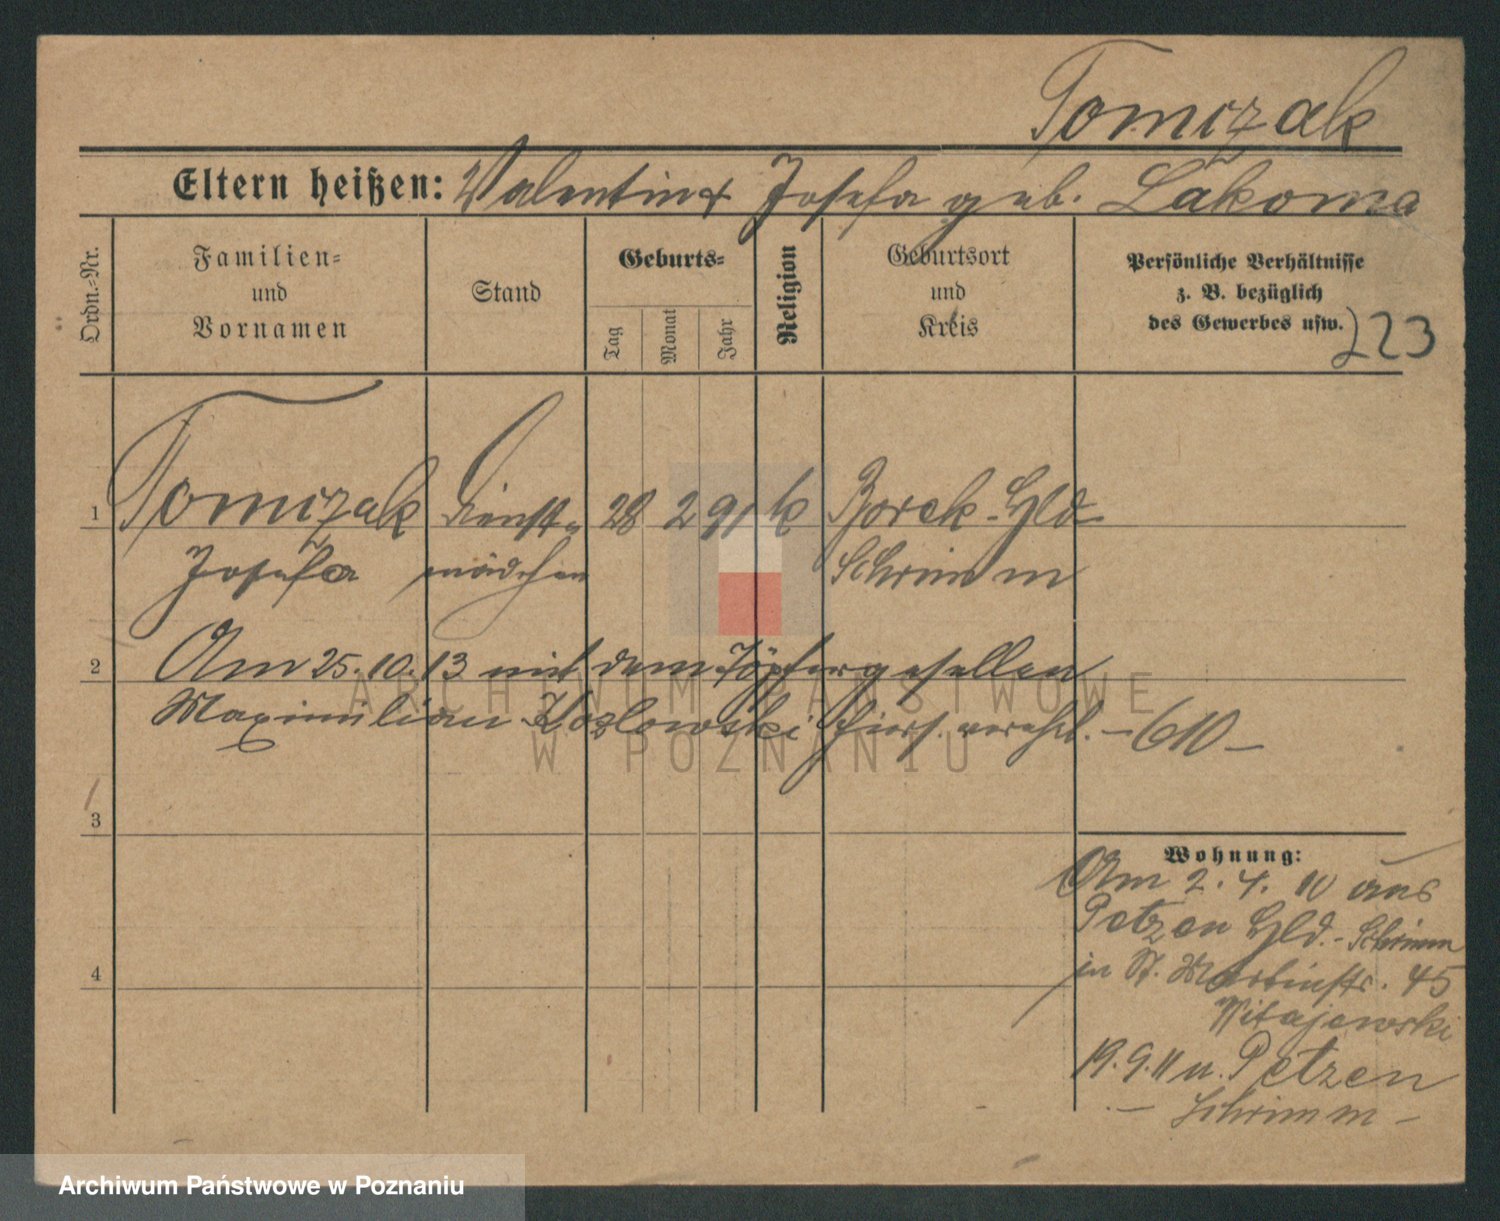 Tomczak
Eltern heißen: Valentin & Josefa geb. Lakoma
Ordn.-Nr.
Familien- und Vornamen
Stand
Geburts-
Tag
Monat
Jahr
Religion
Geburtsort und Kreis
Persönliche Verhältnisse
z. B. bezüglich
des Gewerbes usw.
223
1 Tomczak Dienst- 28 2 91 k Borek Hld
Josefa mädchen Schrimm
2 Am 25.10.13 mit dem Töpfergesellen
Maximilian Kozlowski hiers. verehl. - 610 -
3
4
Wohnung:
Am 2. 4. 10 aus
Petzen Hld. - Schrimm
in St. Martinstr. 45
Witajewski
19.9.11 n. Petzen
- Schrimm -
ARCHIWUM PAŃSTWOWE
W POZNANIU
Archiwum Państwowe w Poznaniu